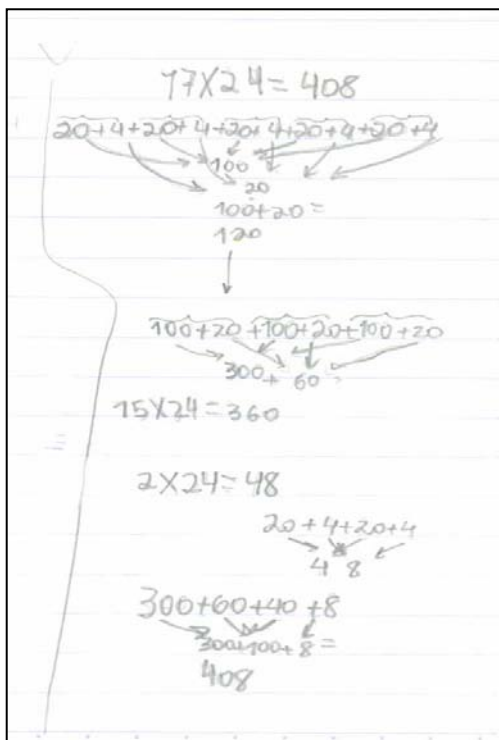 17X24=408
20+4+20+4+20+4+20+4+20+4
100
20
100+20=
120
100+20+100+20+100+20
300+ 60
15X24=360
2X24=48
20+4+20+4
4 8
300+60+40+8
300+100+8=
408